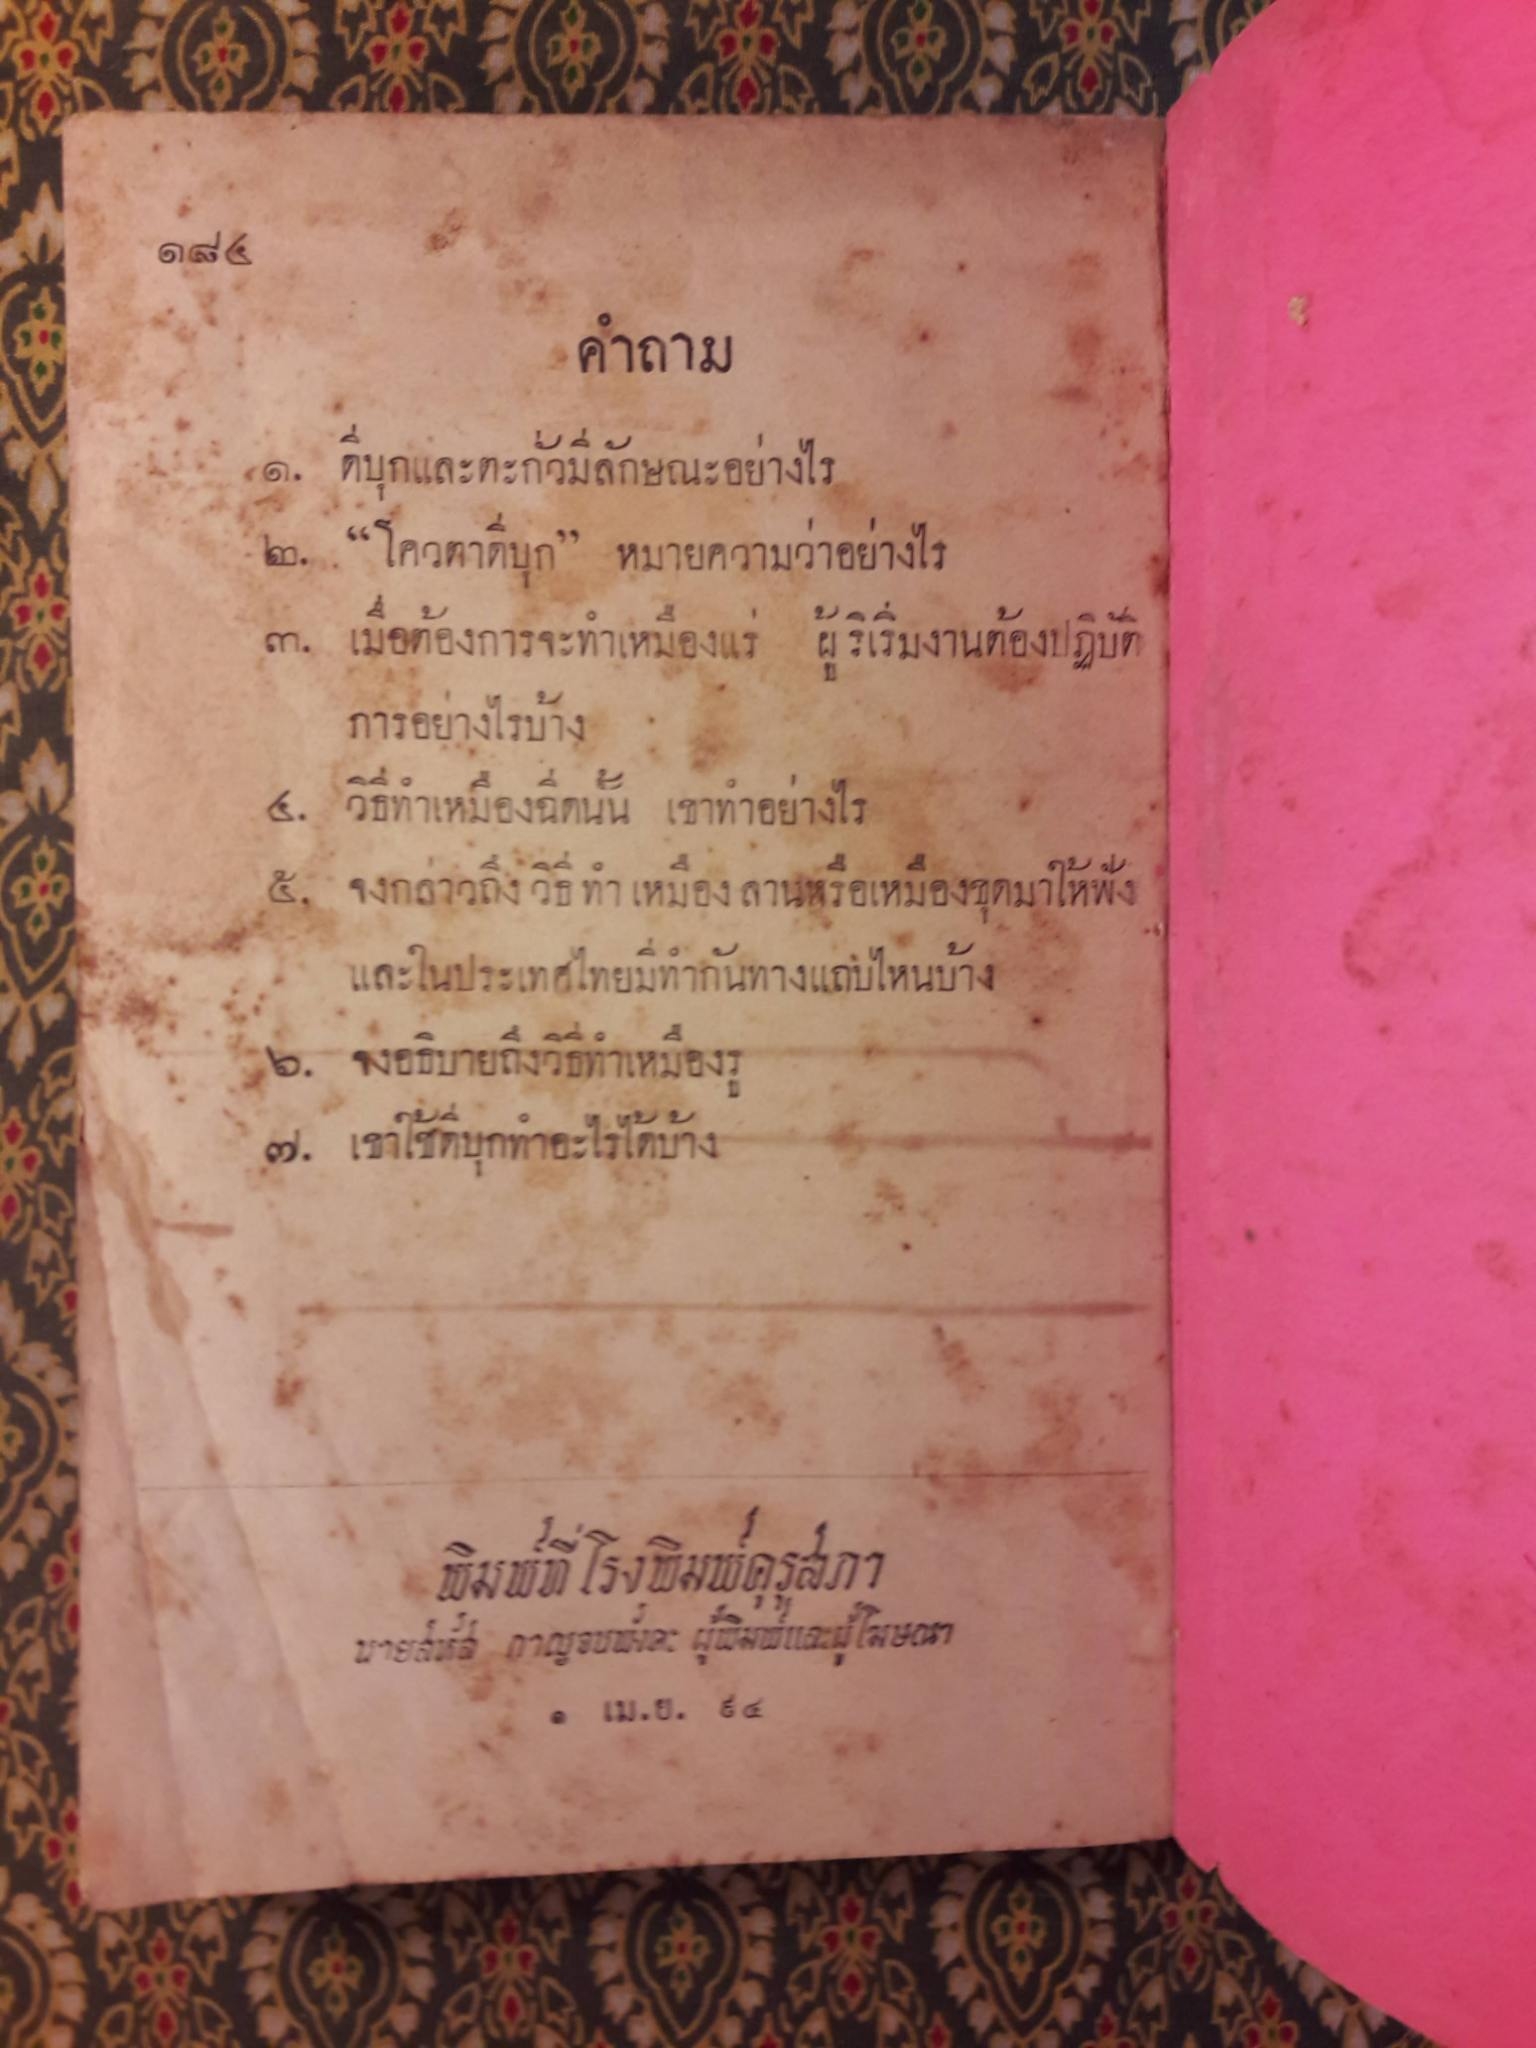 ๑๘๔
คำถาม
๑. ดีบุกและตะกั่วมีลักษณะอย่างไร
๒. “โควตาดีบุก” หมายความว่าอย่างไร
๓. เมื่อต้องการจะทำเหมืองแร่ ผู้ริเริ่มงานต้องปฏิบัติ
การอย่างไรบ้าง
๔. วิธีทำเหมืองฉีดนั้น เขาทำอย่างไร
๕. จงกล่าวถึงวิธีทำเหมืองลานหรือเหมืองขุดมาให้ฟัง
และในประเทศไทยมีทำกันทางแถบไหนบ้าง
๖. จงอธิบายถึงวิธีทำเหมืองรู
๗. เขาใช้ดีบุกทำอะไรได้บ้าง
พิมพ์ที่โรงพิมพ์คุรุสภา
นายสหัส กาญจนพังคะ ผู้พิมพ์และผู้โฆษณา
๑ เม.ย. ๙๔